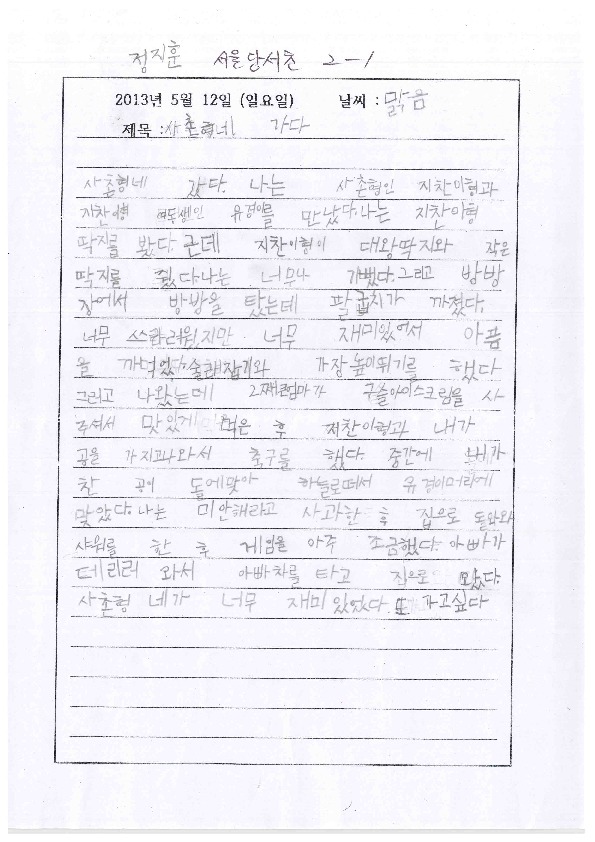 정지훈 서울당서초 2-1
2013년 5월 12일 (일요일) 날씨 : 맑음
제목 : 사촌형네 가다
사촌형네 갔다. 나는 사촌형인 지찬이형과
지찬이형 여동생인 유경이를 만났다. 나는 지찬이형
딱지를 봤다. 근데 지찬이형이 대왕딱지와 작은
딱지를 줬다. 나는 너무나 기뻤다. 그리고 방방
장에서 방방을 탔는데 팔굽치가 까졌다.
너무 쓰라려웠지만 너무 재미있어서 아픔
을 까먹었다. 술래잡기와 가장높이뛰기를 했다
그리고 나왔는데 2째큰엄마가 구슬아이스크림을 사
주셔서 맛있게 먹은 후 지찬이형과 내가
공을 가지고나와서 축구를 했다. 중간에 내가
찬 공이 돌에맞아 하늘로떠서 유경이머리에
맞았다. 나는 미안해라고 사과한 후 집으로 돌아와
샤워를 한 후 게임을 아주 조금했다. 아빠가
데리러 와서 아빠차를 타고 집으로 왔다.
사촌형 네가 너무 재미있었다. 또 가고싶다